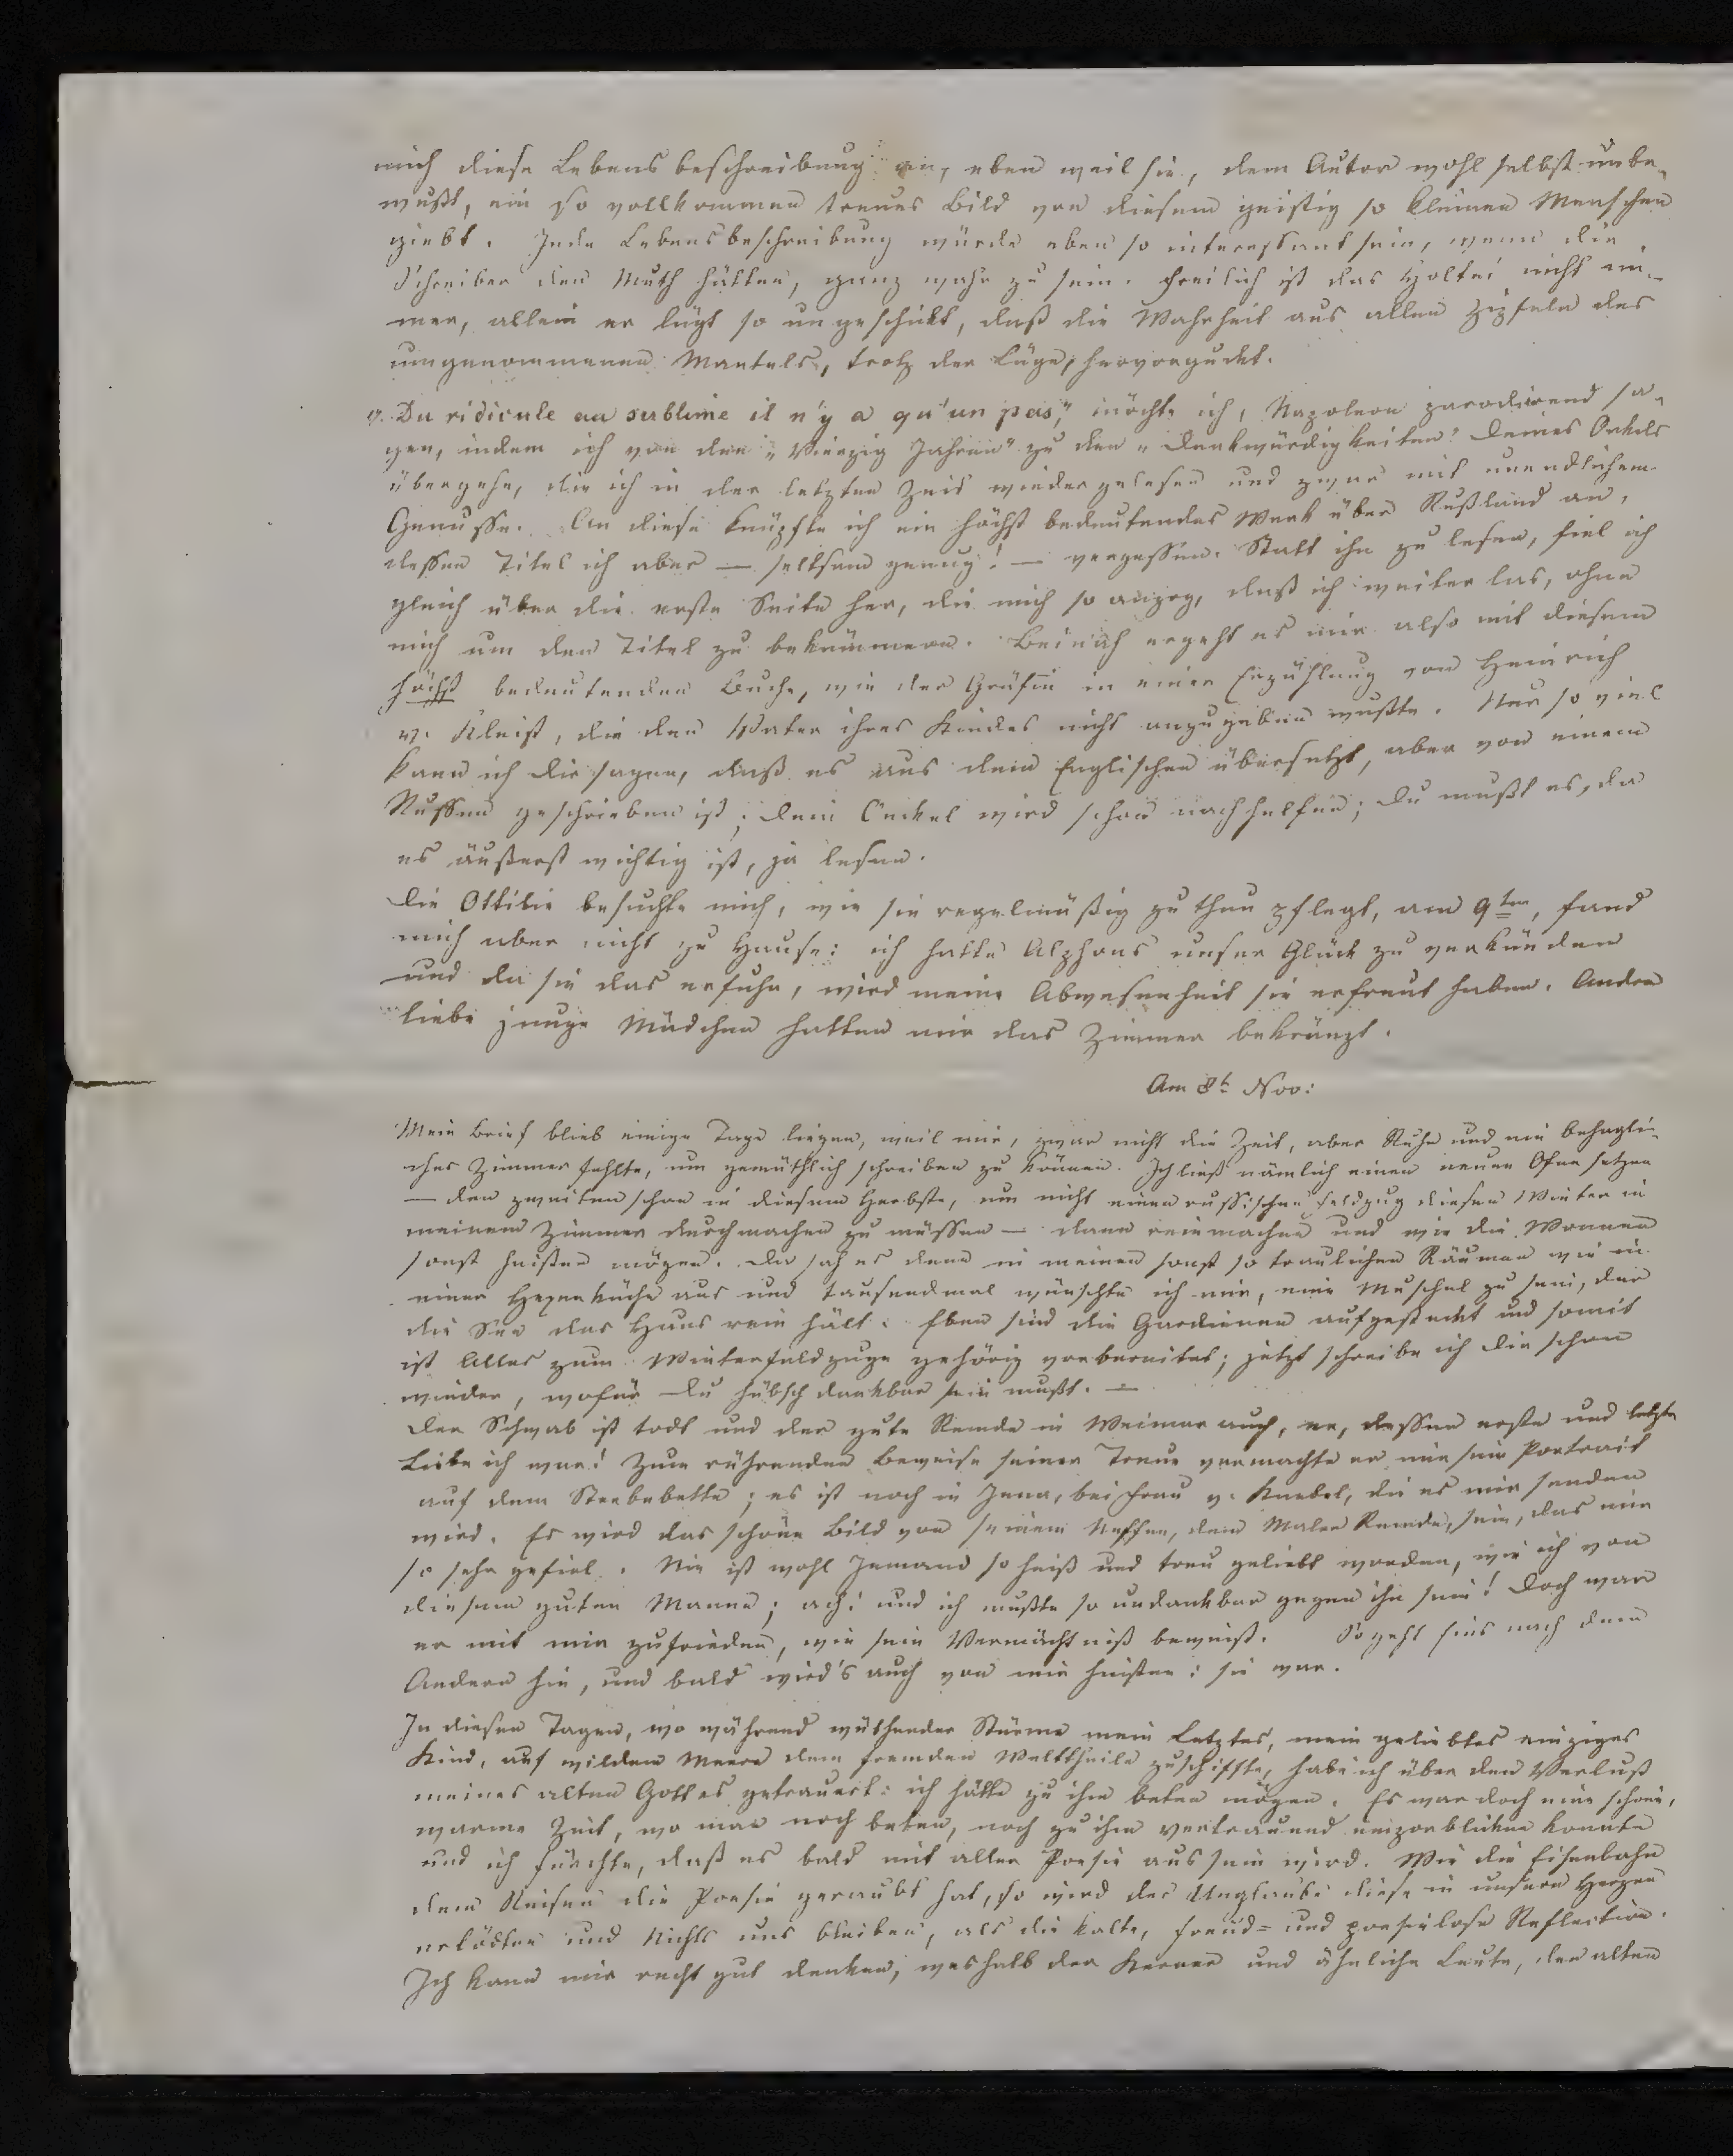 mich diese Lebensbeschreibung an, eben weil sie, dem Autor wohl selbst unbe-
wußt, ein so vollkommen treues Bild von diesem geistig so kleinen Menschen
giebt. Jede Lebensbeschreibung würde eben so interessant sein, wenn die
Schreiber den Muth hätten, ganz wahr zu sein. Freilich ist das Holtei nicht im-
mer, allein er lügt so ungeschickt, daß die Wahrheit aus allen Zipfeln des
umgenommenen Mantels, trotz der Lüge, hervorguckt.
„Du ridicule au sublime il n'y a qu'un pas," möchte ich, Napoleon parodirend sa-
gen, indem ich von den „Vierzig Jahren" zu den „Denkwürdigkeiten" Deines Onkels
übergehe, die ich in der letzten Zeit wieder gelesen und zwar mit unendlichem
Genusse. An diese knüpfte ich ein höchst bedeutendes Werk über Rußland an,
dessen Titel ich aber — seltsam genug! — vergessen. Statt ihn zu lesen, fiel ich
gleich über die erste Seite her, die mich so anzog, daß ich weiter las, ohne
mich um den Titel zu bekümmern. Beinah ergeht es mir also mit diesem
höchst bedeutenden Buche, wie der Gräfin in einer Erzählung von Heinrich
v. Kleist, die den Vater ihres Kindes nicht anzugeben wußte. Nur so viel
kann ich Dir sagen, daß es aus dem Englischen übersetzt, aber von einem
Russen geschrieben ist; Dein Onkel wird schon nachhelfen; Du mußt es, da
es äußerst wichtig ist, ja lesen.
Die Ottilie besuchte mich, wie sie regelmäßig zu thun pflegt, am 9ten, fand
mich aber nicht zu Hause: ich hatte Alphons unser Glück zu verkünden
und da sie das erfuhr, wird meine Abwesenheit sie erfreut haben. Andre
liebe junge Mädchen hatten mir das Zimmer bekränzt.
Am 8t Nov:
Mein Brief blieb einige Tage liegen, weil mir, zwar nicht die Zeit, aber Ruhe und ein behagli-
ches Zimmer fehlte, um gemüthlich schreiben zu können. Ich ließ nämlich einen neuen Ofen setzen
— den zweiten schon in diesem Herbste, um nicht einen russischen Feldzug diesen Winter in
meinem Zimmer durchmachen zu müssen — dann reinmachen und wie die Wonnen
sonst heißen mögen. Da sah es denn in meinen sonst so traulichen Räumen wie in
einer Hexenküche aus und tausendmal wünschte ich mir, eine Muschel zu sein, der
die See das Haus rein hält. Eben sind die Gardienen aufgesteckt und somit
ist Alles zum Winterfeldzuge gehörig vorbereitet; jetzt schreibe ich Dir schon
wieder, wofür Du hübsch dankbar sein mußt. —
Der Schwab ist todt und der gute Remde in Weimar auch, er, dessen erste und letzte
Liebe ich war! Zum rührenden Beweise seiner Treue vermachte er mir sein Portrait
auf dem Sterbebette; es ist noch in Jena, bei Frau v. Knebel, die es mir senden
wird. Es wird das schöne Bild von seinem Neffen, dem Maler Remde, sein, das mir
so sehr gefiel. Nie ist wohl Jemand so heiß und treu geliebt worden, wie ich von
diesem guten Manne; ach! und ich mußte so undankbar gegen ihn sein! Doch war
er mit mir zufrieden, wie sein Vermächtniß beweist. So geht Eins nach dem
Andern hin, und bald wird's auch von mir heißen: sie war.
In diesen Tagen, wo während wüthender Stürme mein Letztes, mein geliebtes einziges
Kind, auf wildem Meere dem fremden Welttheile zuschiffte, habe ich über den Verlust
meines alten Gottes getrauert: ich hätte zu ihm beten mögen. Es war doch eine schöne,
warme Zeit, wo man noch beten, noch zu ihm vertrauend emporblicken konnte
und ich fürchte, daß es bald mit aller Poesie aus sein wird. Wie die Eisenbahn
dem Reisen die Poesie geraubt hat, so wird der Unglaube diese in unsern Herzen
ertödten und Nichts uns bleiben, als die kalte, freud- und poesielose Reflection.
Ich kann mir recht gut denken, weshalb der Kerner und ähnliche Leute, den alten